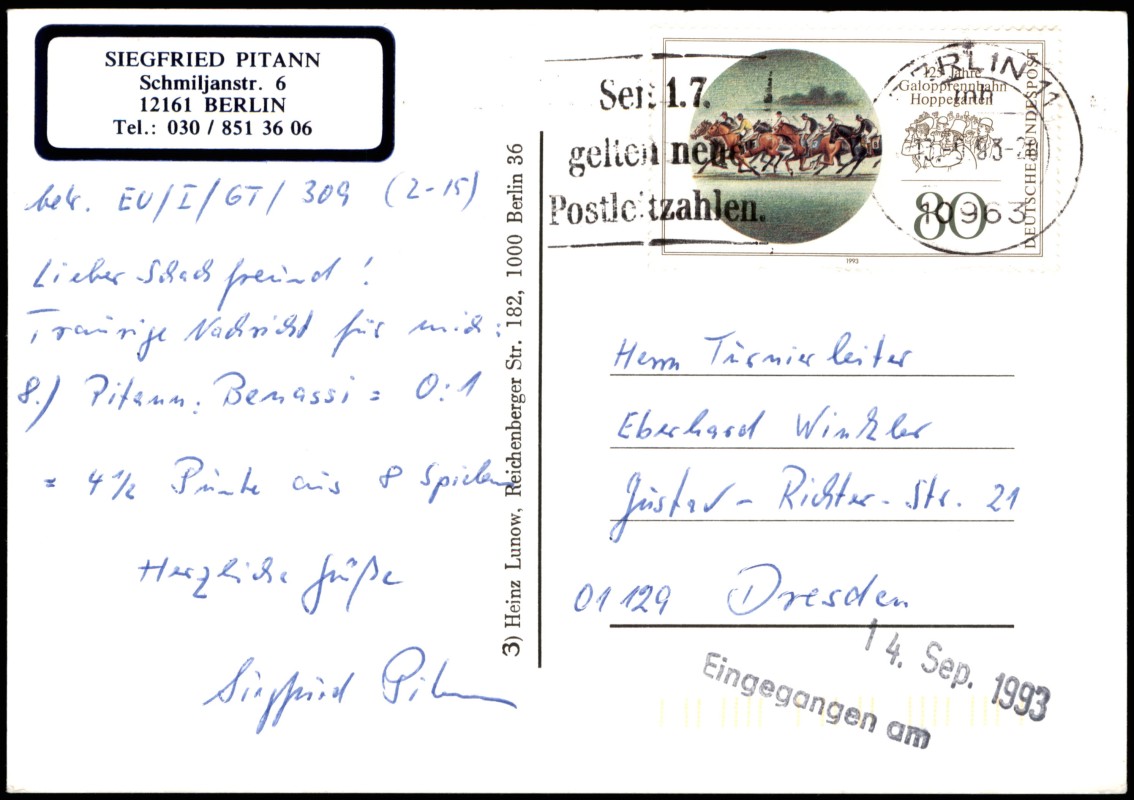 SIEGFRIED PITANN
Schmiljanstr. 6
12161 BERLIN
Tel.: 030 / 851 36 06
betr. EU/I/GT/309 (2-15)
Lieber Schachfreund!
Traurige Nachricht für mich:
8.) Pitann : Benassi = 0:1
= 4 1/2 Punkte aus 8 Spielen
Herzliche Grüße
Siegfried Pitann
3) Heinz Lunow, Reichenberger Str. 182, 1000 Berlin 36
Seit 1.7.
gelten neue
Postleitzahlen.
125 Jahre
Galopprennbahn
Hoppegarten
80
DEUTSCHE BUNDESPOST
1993
BERLIN 11
mh
93-2
10963
Herrn Turnierleiter
Eberhard Winkler
Gustav-Richter-Str. 21
01129 Dresden
14. Sep. 1993
Eingegangen am